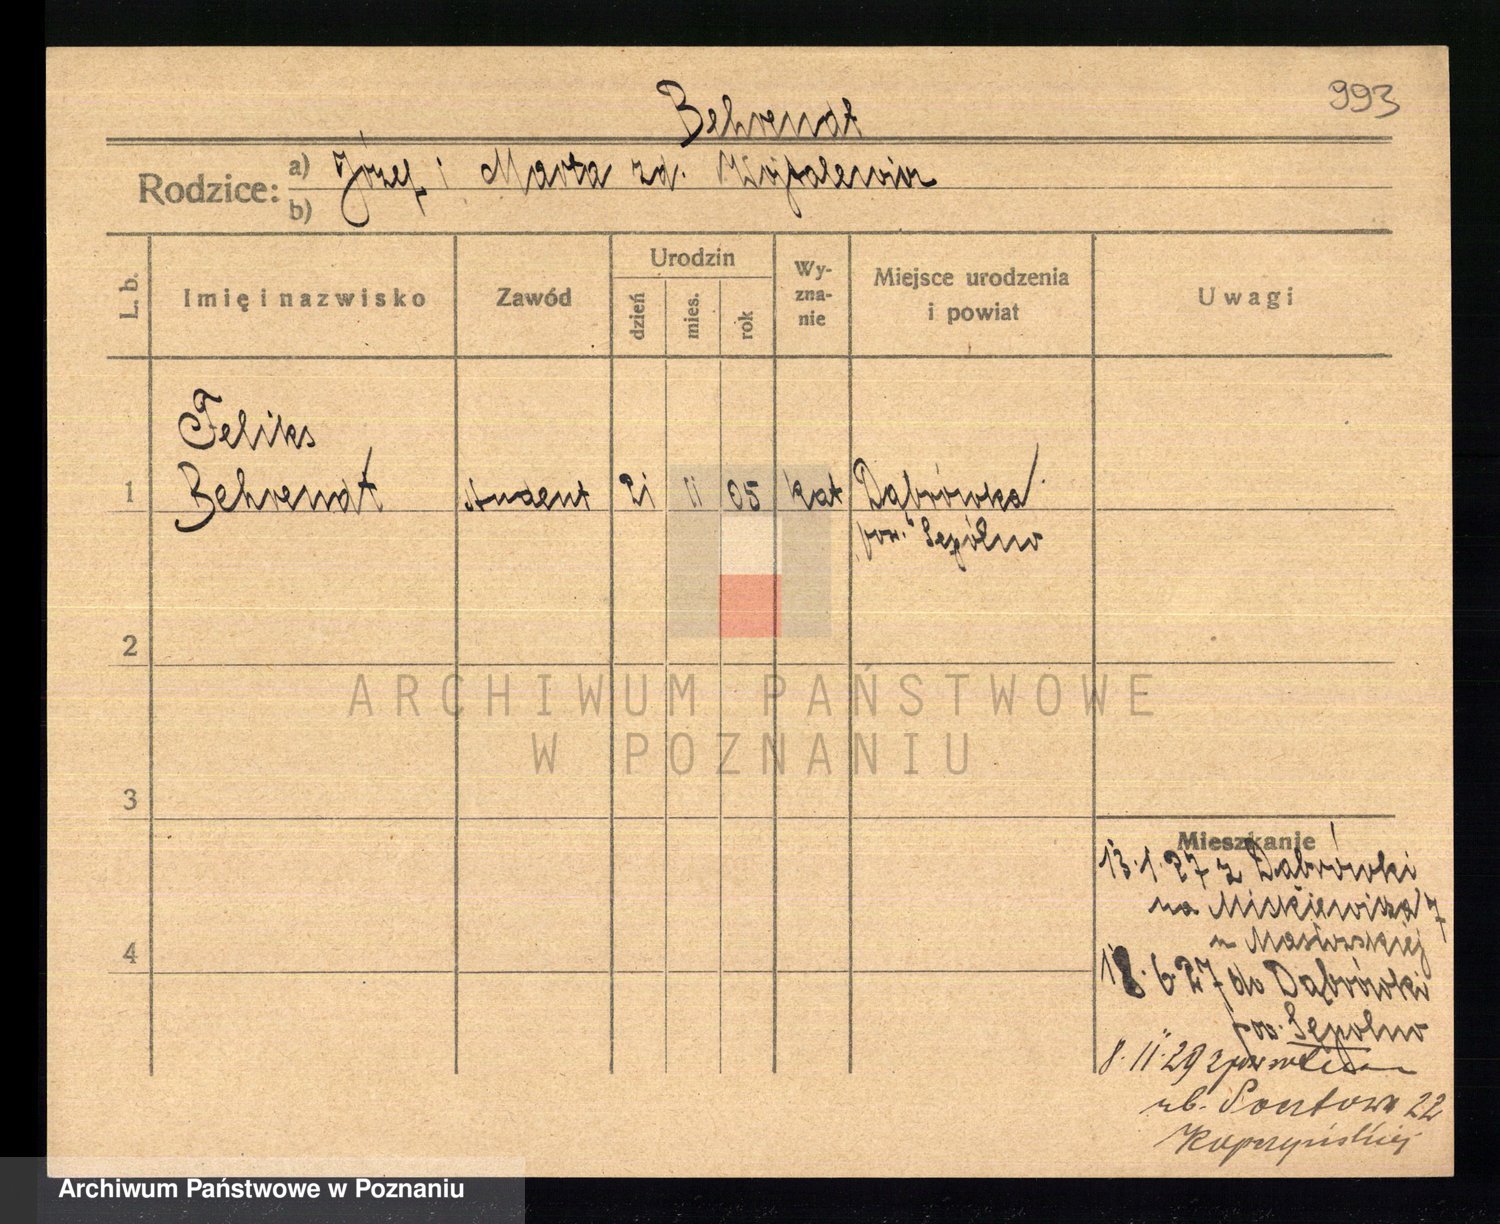 993
Behrendt
Rodzice: a) Józef i Marta zd. Wojtalewicz
b)
L. b.
Imię i nazwisko
Zawód
Urodzin
dzień
mies.
rok
Wy-
zna-
nie
Miejsce urodzenia
i powiat
Uwagi
Feliks
1 Behrendt student 21 11 05 kat Dąbrówka
pow. Sępólno
2
ARCHIWUM PAŃSTWOWE
W POZNANIU
3
Mieszkanie
13.1.27 z Dąbrówki
na Mickiewicza 7
4
18.6.27 do Dąbrówki
pow. Sępolno
8.11.29
ub. Pocztowa 22
Kapczyńskiej
Archiwum Państwowe w Poznaniu